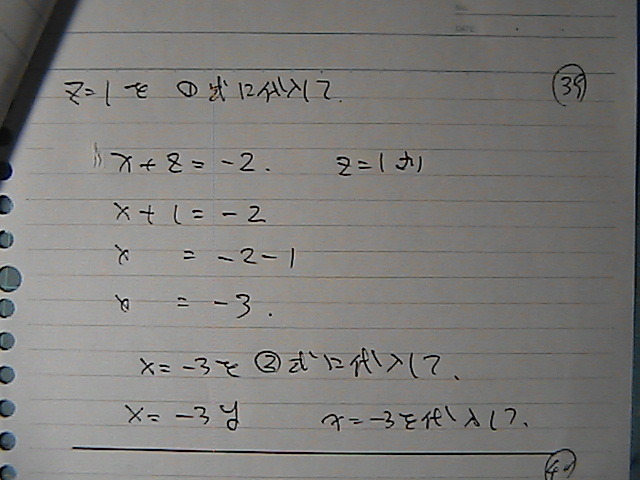 ㊴
z=1を ①式に代入して.
x+z=-2. z=1より
x+1=-2
x =-2-1
x =-3.
x=-3を ②式に代入して、
x=-3y x=-3を代入して.